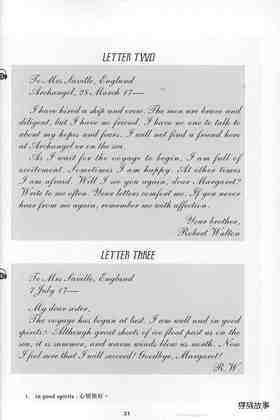 LETTER TWO
To Mrs Saville, England
Archangel, 28 March 17—
I have hired a ship and crew. The men are brave and
diligent, but I have no friend. I have no one to talk to
about my hopes and fears. I will not find a friend here
at Archangel or on the sea.
As I wait for the voyage to begin, I am full of
excitement. Sometimes I am happy. At other times
I am afraid. Will I see you again, dear Margaret?
Write to me often. Your letters comfort me. If you never
hear from me again, remember me with affection.
Your brother,
Robert Walton
LETTER THREE
To Mrs Saville, England
7 July 17—
My dear sister,
The voyage has begun at last. I am well and in good
spirits.¹ Although great sheets of ice float past us on the
sea, it is summer, and warm winds blow us north. Now
I feel sure that I will succeed! Goodbye, Margaret!
R.W
1. in good spirits：心情很好。
21